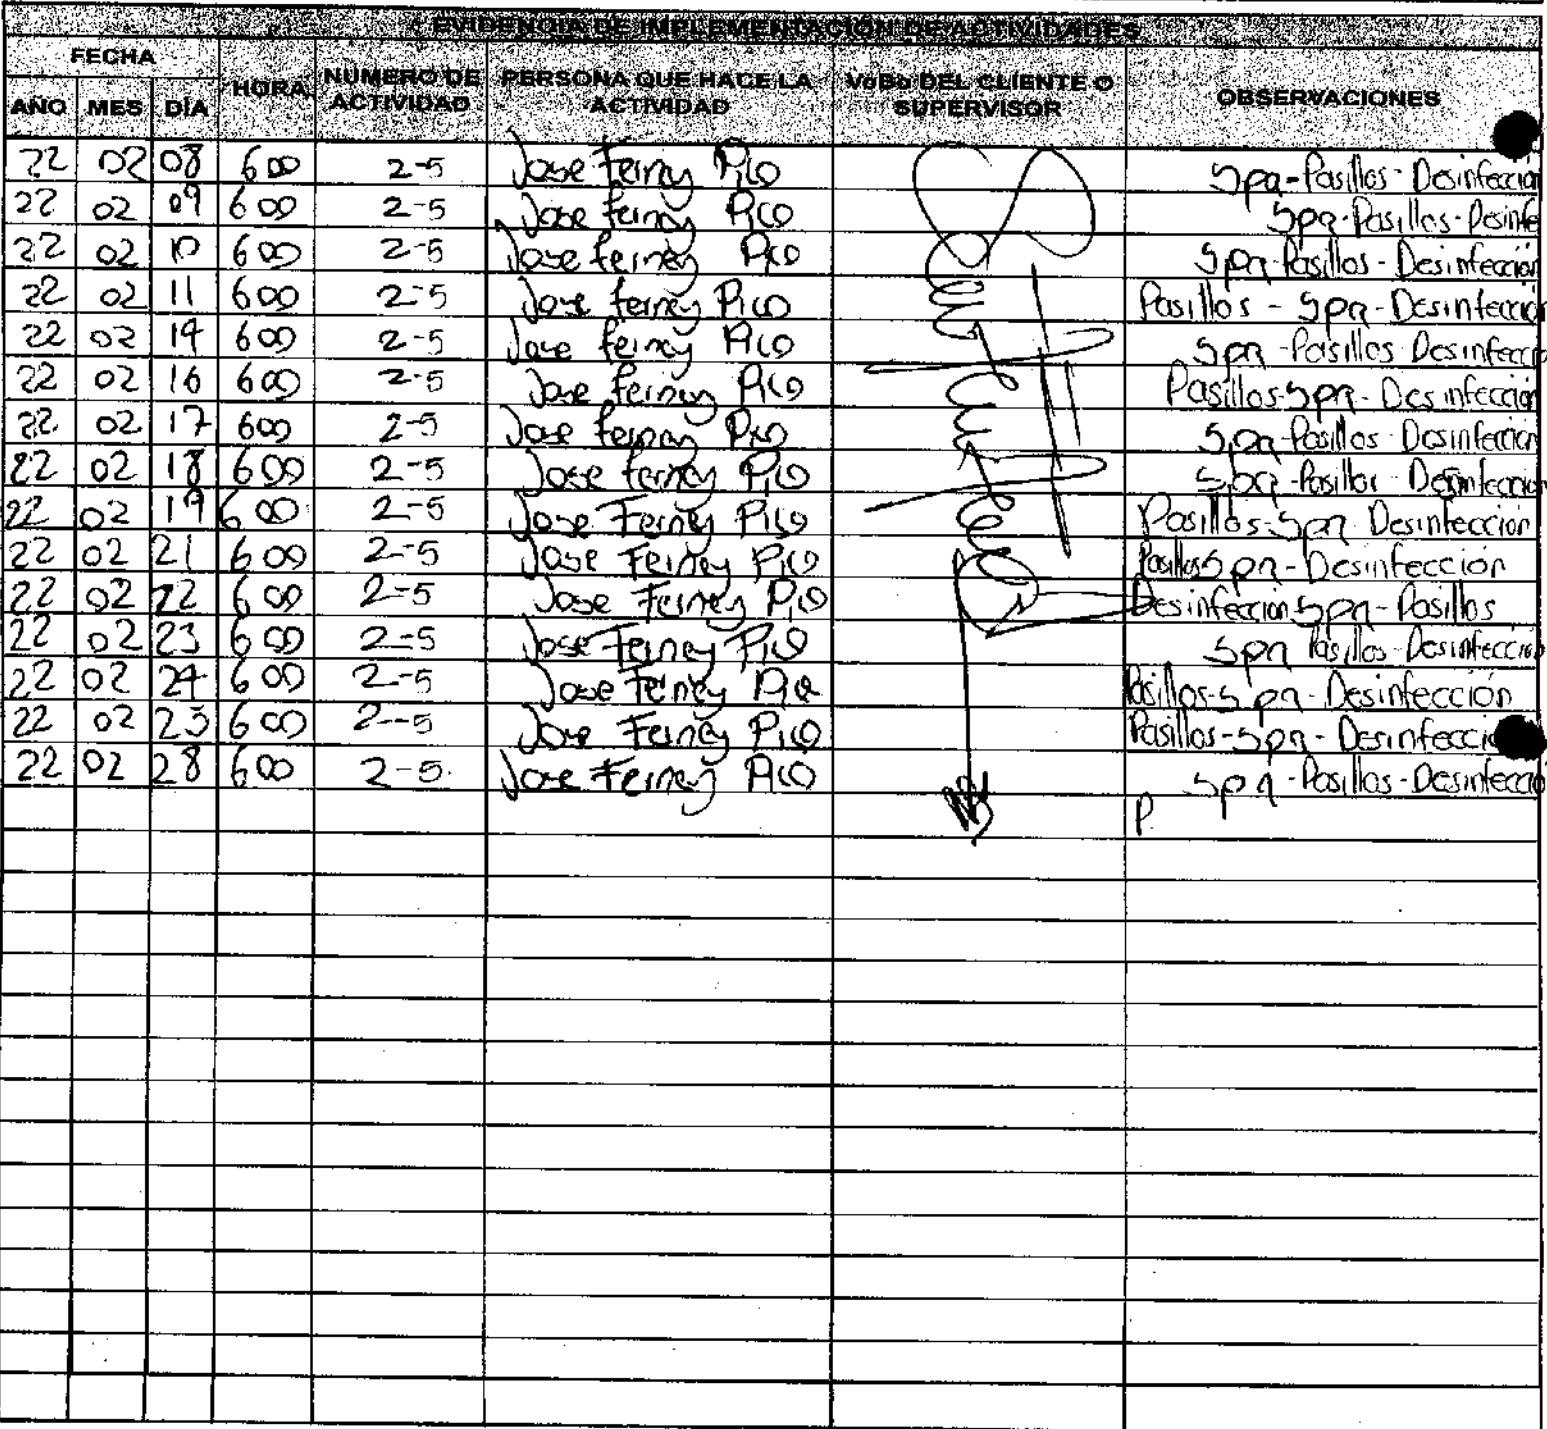 EVIDENCIA DE IMPLEMENTACIÓN DE ACTIVIDADES
FECHA HORA NÚMERO DE ACTIVIDAD PERSONA QUE HACE LA ACTIVIDAD VoBo DEL CLIENTE O SUPERVISOR OBSERVACIONES
AÑO MES DÍA
22 02 08 600 2-5 Jose Ferney Pico Spa-Pasillos-Desinfección
22 02 09 600 2-5 Jose ferney Pico Spa-Pasillos-Desinfe
22 02 10 600 2-5 Jose ferney Pico Spa-Pasillos-Desinfección
22 02 11 600 2-5 Jose ferney Pico Pasillos-Spa-Desinfección
22 02 14 600 2-5 Jose ferney Pico Spa-Pasillos Desinfecció
22 02 16 600 2-5 Jose ferney Pico Pasillos-Spa-Desinfección
22 02 17 600 2-5 Jose ferney Pico Spa-Pasillos-Desinfección
22 02 18 600 2-5 Jose ferney Pico Spa-Pasillos Desinfección
22 02 19 600 2-5 Jose Ferney Pico Pasillos-Spa-Desinfección
22 02 21 600 2-5 Jose Ferney Pico Pasillos Spa-Desinfección
22 02 22 600 2-5 Jose Ferney Pico Desinfección Spa-Pasillos
22 02 23 600 2-5 Jose Ferney Pico Spa Pasillos-Desinfección
22 02 24 600 2-5 Jose Ferney Pico Pasillos-Spa-Desinfección
22 02 25 600 2-5 Jose Ferney Pico Pasillos-Spa-Desinfecció
22 02 28 600 2-5 Jose Ferney Pico Spa-Pasillos-Desinfecció
P